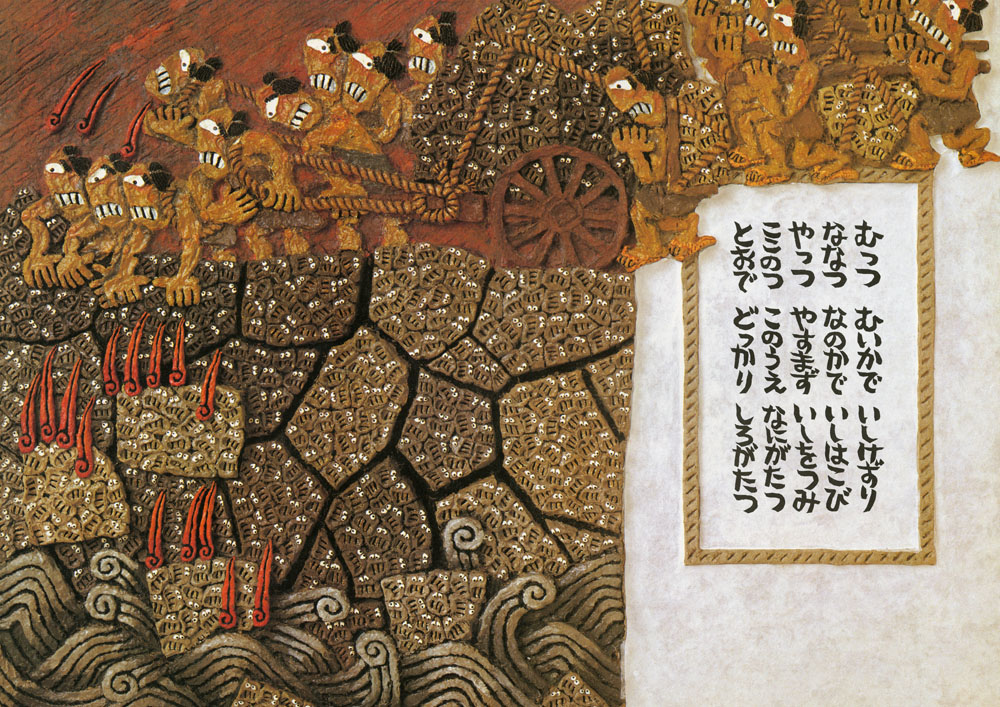 むっつ むいかで いしけずり
ななつ なのかで いしはこび
やっつ やすまず いしをつみ
ここのつ このうえ なにがたつ
とおで どっかり しろがたつ